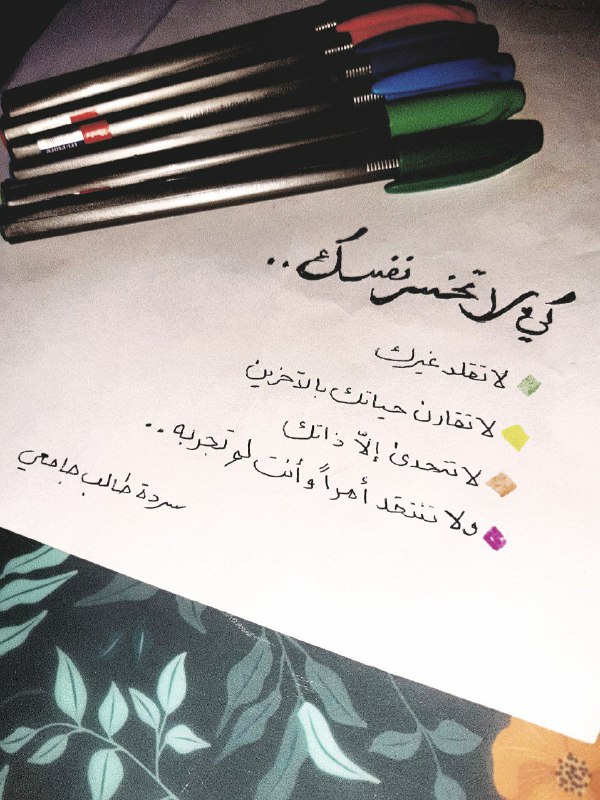 كي لا تخسر نفسك..
لا تقلد غيرك
لا تقارن حياتك بالآخرين
لا تتحدى إلّا ذاتك
ولا تنتقد أمراً وأنت لم تجربه..
سردة طالب جامعي